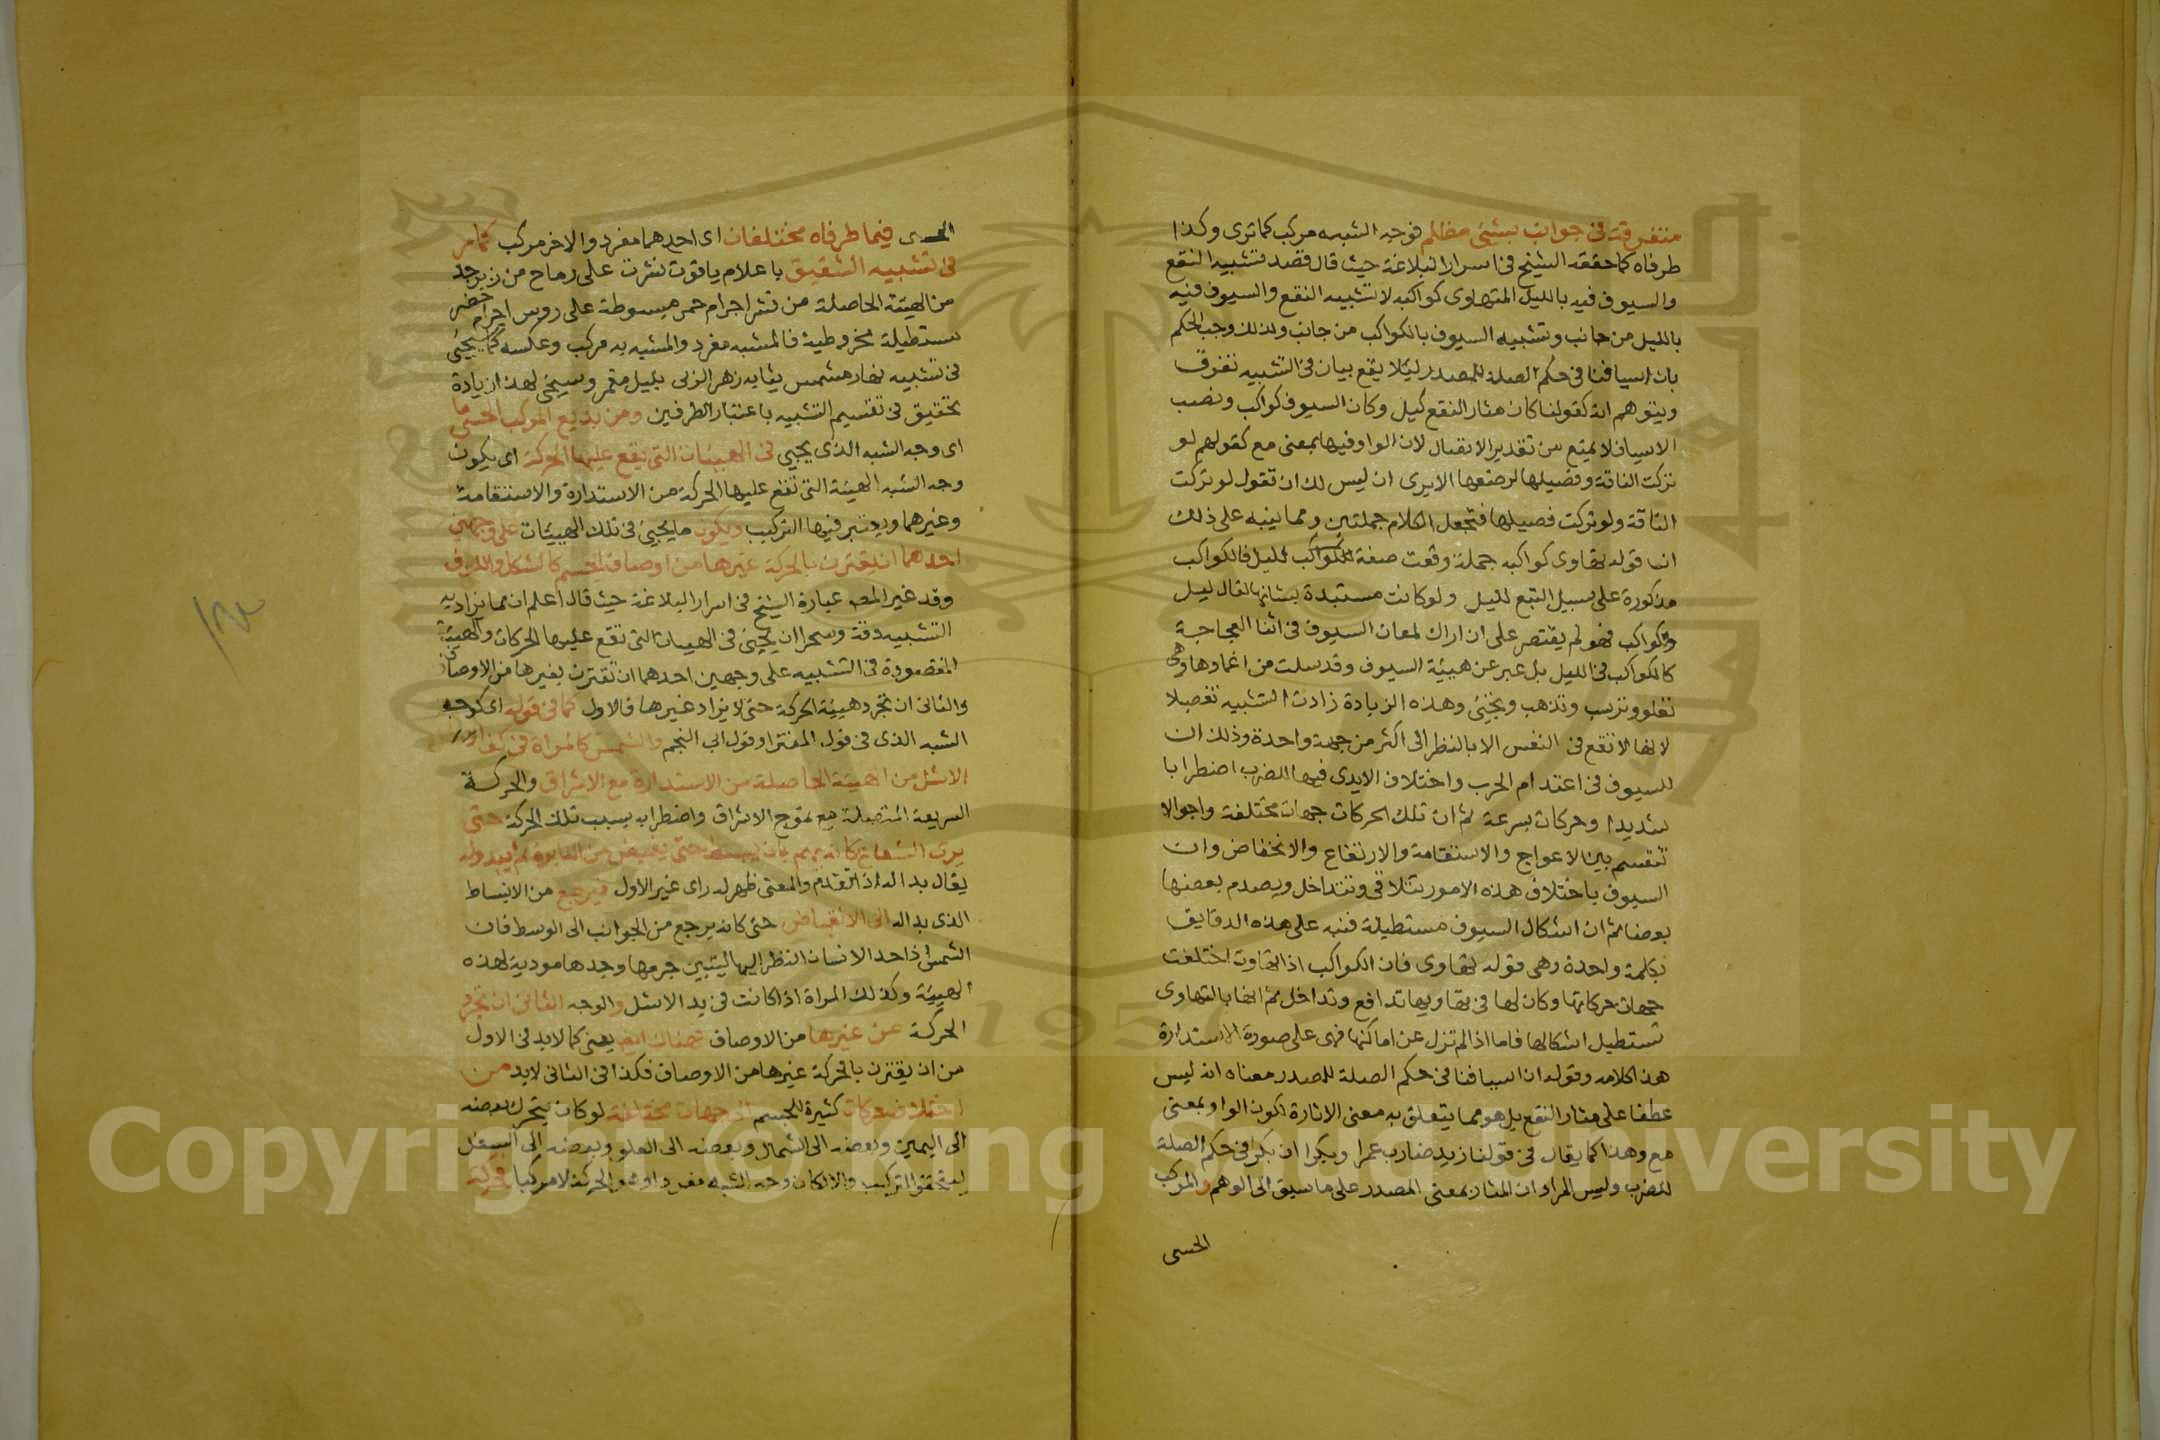 متفرقة فى جوانب شيئ مظلم فوجه الشبه مركب كما ترى وكذا
طرفاه كما حققه الشيخ فى اسرار البلاغة حيث قال قصد تشبيه النقع
والسيوف فيه بالليل المتهاوى كواكبه لا تشبيه النقع والسيوف فيه
بالليل من جانب وتشبيه السيوف بالكواكب من جانب ولذلك وجب الحكم
بان اسيافنا فى حكم الصلة للمصدر ليلا يقع بيان فى التشبيه تفرق
ويتوهم انه كقولنا كان مثار النقع ليل وكان السيوف كواكب ونصب
الاسياف لا يمنع من تقدير الاتصال لان الواو فيها بمعنى مع كقولهم لو
تركت الناقة وفصيلها لرضعها الا يرى ان ليس لك ان تقول لو تركت
الناقة ولو تركت فصيلها فتجعل الكلام جملتين ومما ينبه على ذلك
ان قوله تهاوى كواكبه جملة وقعت صفة لليل فالكواكب
مذكورة على سبيل التبع لليل ولو كانت مستبدة بشانها لقال ليل
وكواكب فهو لم يقتصر على ان اراك لمعان السيوف فى اثنا العجاجة
كالكواكب فى الليل بل عبر عن هيئة السيوف وقد سلت من اغمادها وهى
تعلو وترسب وتذهب وتجيئ وهذه الزيادة زادت التشبيه تفصيلا
لانها لا تقع فى النفس الا بالنظر الى اكثر من جهة واحدة وذلك ان
للسيوف فى اعتدام الحرب واختلاف الايدى فيها للضرب اضطرابا
شديدا وحركات بسرعة ثم ان تلك الحركات جهات مختلفة واحوالا
تنقسم بين الاعوجاج والاستقامة والارتفاع والانخفاض وان
السيوف باختلاف هذه الامور تتلاقى وتتداخل ويصدم بعضها
بعضا ثم ان اشكال السيوف مستطيلة فنبه على هذه الدقايق
بكلمة واحدة وهى قوله تهاوى فان الكواكب اذا تهاوت اختلفت
جهات حركاتها وكان لها فى تهاويها تدافع وتداخل ثم انها بالتهاوى
تستطيل اشكالها فاما اذا لم تزل عن اماكنها فهى على صورة الاستدارة
هذا كلامه وقوله ان اسيافنا فى حكم الصلة للمصدر معناه انه ليس
عطفا على مثار النقع بل هو مما يتعلق به معنى الاثارة لكون الواو بمعنى
مع وهذا كما يقال فى قولنا زيد ضارب عمرا وبكرا ان بكرا فى حكم الصلة
للضرب وليس المراد ان المثار بمعنى المصدر على ما سبق الى الوهم والمركب
الحسى
الحسى فيما طرفاه مختلفان اى احدهما مفرد والاخر مركب كما مر
فى تشبيه الشقيق باعلام ياقوت نشرت على رماح من زبرجد
من الهيئة الحاصلة من نشر اجرام حمر مبسوطة على روس اجرام خضر
مستطيلة مخروطية فالمشبه مفرد والمشبه به مركب وعكسه كما سيجيئ
فى تشبيه نهار مشمس شابه زهر الربى بليل مقمر وسيجئ لهذا زيادة
تحقيق فى تقسيم التشبيه باعتبار الطرفين ومن بديع المركب الحسى ما
اى وجه الشبه الذى يجيئ فى الهيئات التى تقع عليها الحركة اى يكون
وجه الشبه الهيئة التى تقع عليها الحركة من الاستدارة والاستقامة
وغيرهما ويعتبر فيها التركيب ويكون ما يجيئ فى تلك الهيئات على وجهين
احدهما ان يقترن بالحركة غيرها من اوصاف الجسم كالشكل واللون
وقد غير المص عبارة الشيخ فى اسرار البلاغة حيث قال اعلم ان مما يزاد به
التشبيه دقة وسحرا ان يجيئ فى الهيات التى تقع عليها الحركات والهيئة
المقصودة فى التشبيه على وجهين احدهما ان تقترن بغيرها من الاوصاف
والثانى ان تجرد هيئة الحركة حتى لا يزاد غيرها فالاول كما فى قوله اى كوجه
الشبه الذى فى قول المعتز او قول ابى النجم والشمس كالمراة فى كف
الاشل من الهيئة الحاصلة من الاستدارة مع الاشراق والحركة
السريعة المتصلة مع تموج الاشراق واضطرابه بسبب تلك الحركة حتى
يرى الشعاع كانه يهم بان ينبسط حتى يفيض من الدايرة ثم يبدو له
يقال بدا له اذا ندم والمعنى ظهر له راى غير الاول فيرجع من الانبساط
الذى بدا له الى الانقباض حتى كانه يرجع من الجوانب الى الوسط فان
الشمس اذا احد الانسان النظر اليها ليتبين جرمها وجدها مودية لهذه
الهيئة وكذلك المراة اذا كانت فى يد الاشل والوجه الثانى ان تجرد
الحركة عن غيرها من الاوصاف فهناك ايض يعنى كما لابد فى الاول
من ان يقترن بالحركة غيرها من الاوصاف فكذا فى الثانى لابد من
اختلاف حركات كثيرة للجسم الى جهات مختلفة لو كان يتحرك بعضه
الى اليمين وبعضه الى الشمال وبعضه الى العلو وبعضه الى السفل
ليتحقق التركيب والا لكان وجه الشبه مفردا وهو الحركة لا مركبا فحركة
١٣٧
Copyright © King Saud University
1957